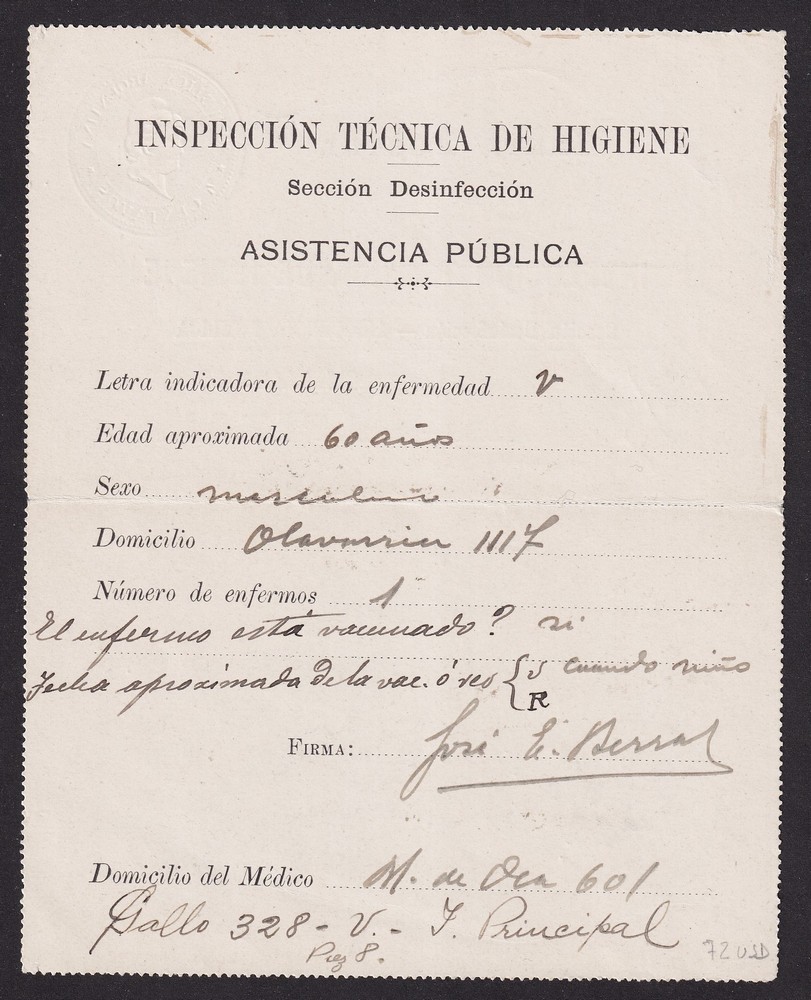 INSPECCIÓN TÉCNICA DE HIGIENE
Sección Desinfección
ASISTENCIA PÚBLICA
Letra indicadora de la enfermedad V
Edad aproximada 60 años
Sexo masculino
Domicilio Olavarria 1117
Número de enfermos 1
El enfermo está vacunado? si
Fecha aproximada de la vac. ó rev { V cuando niño
R
FIRMA: José E. Berral
Domicilio del Médico M. de Oca 601
Gallo 328 - V. - J. Principal
8.
72 USD